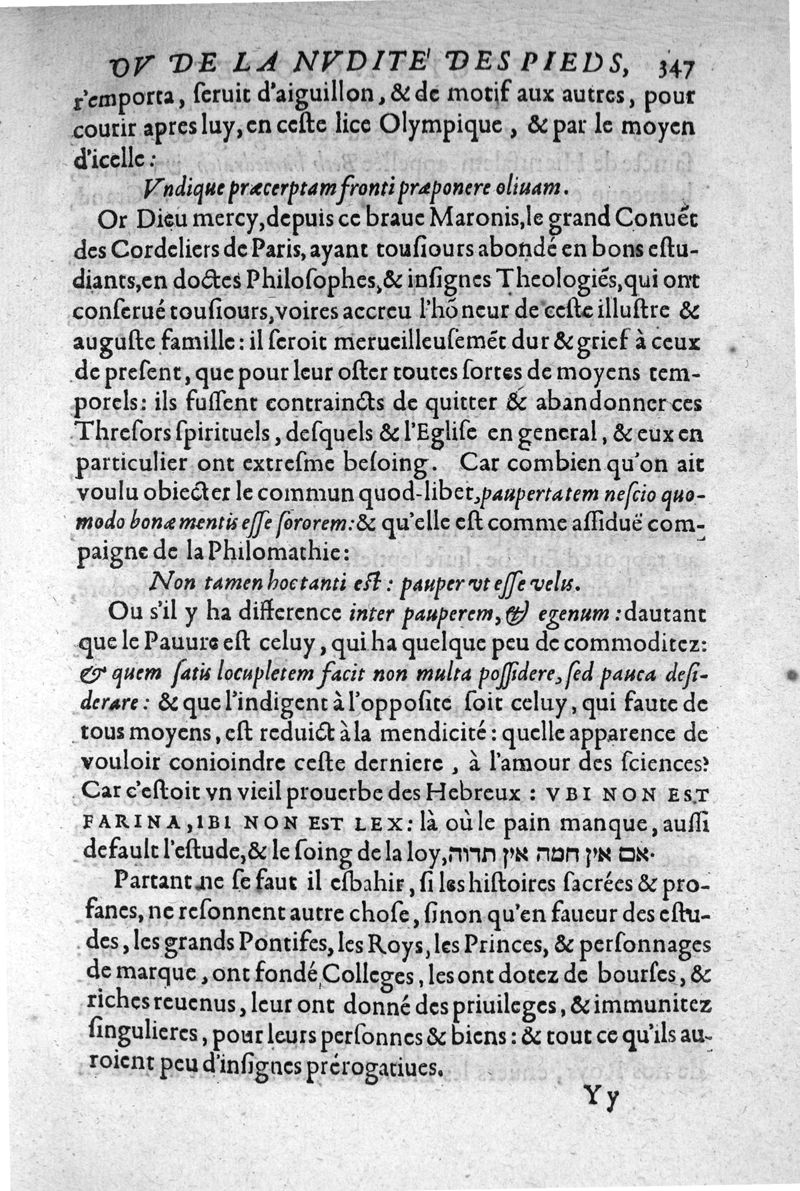 OV DE LA NVDITE' DES PIEDS, 347
r'emporta, ſeruit d'aiguillon, & de motif aux autres, pour
courir apres luy, en ceſte lice Olympique, & par le moyen
d'icelle:
Vndique præcerptam fronti præponere oliuam.
Or Dieu mercy, depuis ce braue Maronis, le grand Conuẽt
des Cordeliers de Paris, ayant touſiours abondé en bons eſtu-
diants, en doctes Philoſophes, & inſignes Theologiẽs, qui ont
conſerué touſiours, voires accreu l'hõneur de ceſte illuſtre &
auguſte famille: il ſeroit merueilleuſemẽt dur & grief à ceux
de preſent, que pour leur oſter toutes ſortes de moyens tem-
porels: ils fuſſent contraincts de quitter & abandonner ces
Threſors ſpirituels, deſquels & l'Egliſe en general, & eux en
particulier ont extreſme beſoing. Car combien qu'on ait
voulu obiecter le commun quod-libet, paupertatem neſcio quo-
modo bonæ mentis eſſe ſororem: & qu'elle eſt comme aſſiduë com-
paigne de la Philomathie:
Non tamen hoc tanti eſt: pauper vt eſſe velis.
Ou s'il y ha difference inter pauperem, & egenum: dautant
que le Pauure eſt celuy, qui ha quelque peu de commoditez:
& quem ſatis locupletem facit non multa poſſidere, ſed pauca deſi-
derare: & que l'indigent à l'oppoſite ſoit celuy, qui faute de
tous moyens, eſt reduict à la mendicité: quelle apparence de
vouloir conioindre ceſte derniere, à l'amour des ſciences?
Car c'eſtoit vn vieil prouerbe des Hebreux: VBI NON EST
FARINA, IBI NON EST LEX: là où le pain manque, auſſi
default l'eſtude, & le ſoing de la loy, אם אין חמה אין תדוה.
Partant ne ſe faut il esbahir, ſi les hiſtoires ſacrées & pro-
fanes, ne reſonnent autre choſe, ſinon qu'en faueur des eſtu-
des, les grands Pontifes, les Roys, les Princes, & perſonnages
de marque, ont fondé Colleges, les ont dotez de bourſes, &
riches reuenus, leur ont donné des priuileges, & immunitez
ſingulieres, pour leurs perſonnes & biens: & tout ce qu'ils au-
roient peu d'inſignes prérogatiues.
Yy